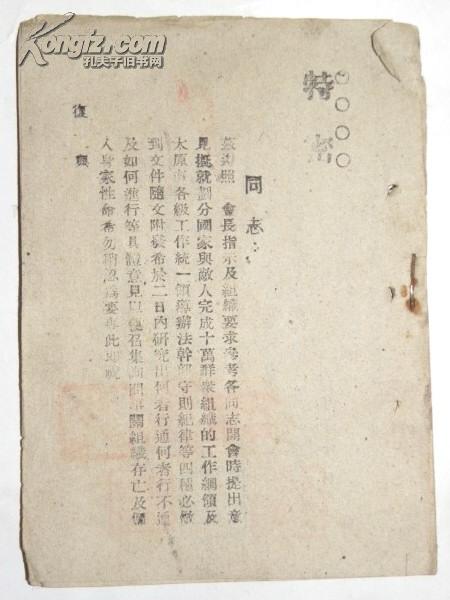 Kongfz.com
孔夫子旧书网
〇〇〇〇
特密
同志：
茲遵照　會長指示及組織要求參考各同志開會時提出意
見擬就劃分國家與敵人完成十萬群衆組織的工作綱領及
太原市各級工作統一領導辦法幹部守則紀律等四種必做
到文件隨文附發希於二日內研究出何者行通何者行不通
及如何進行等具體意見以便召集詢問事關組織存亡及個
人身家性命希勿稍忽爲要專此即祝
復興